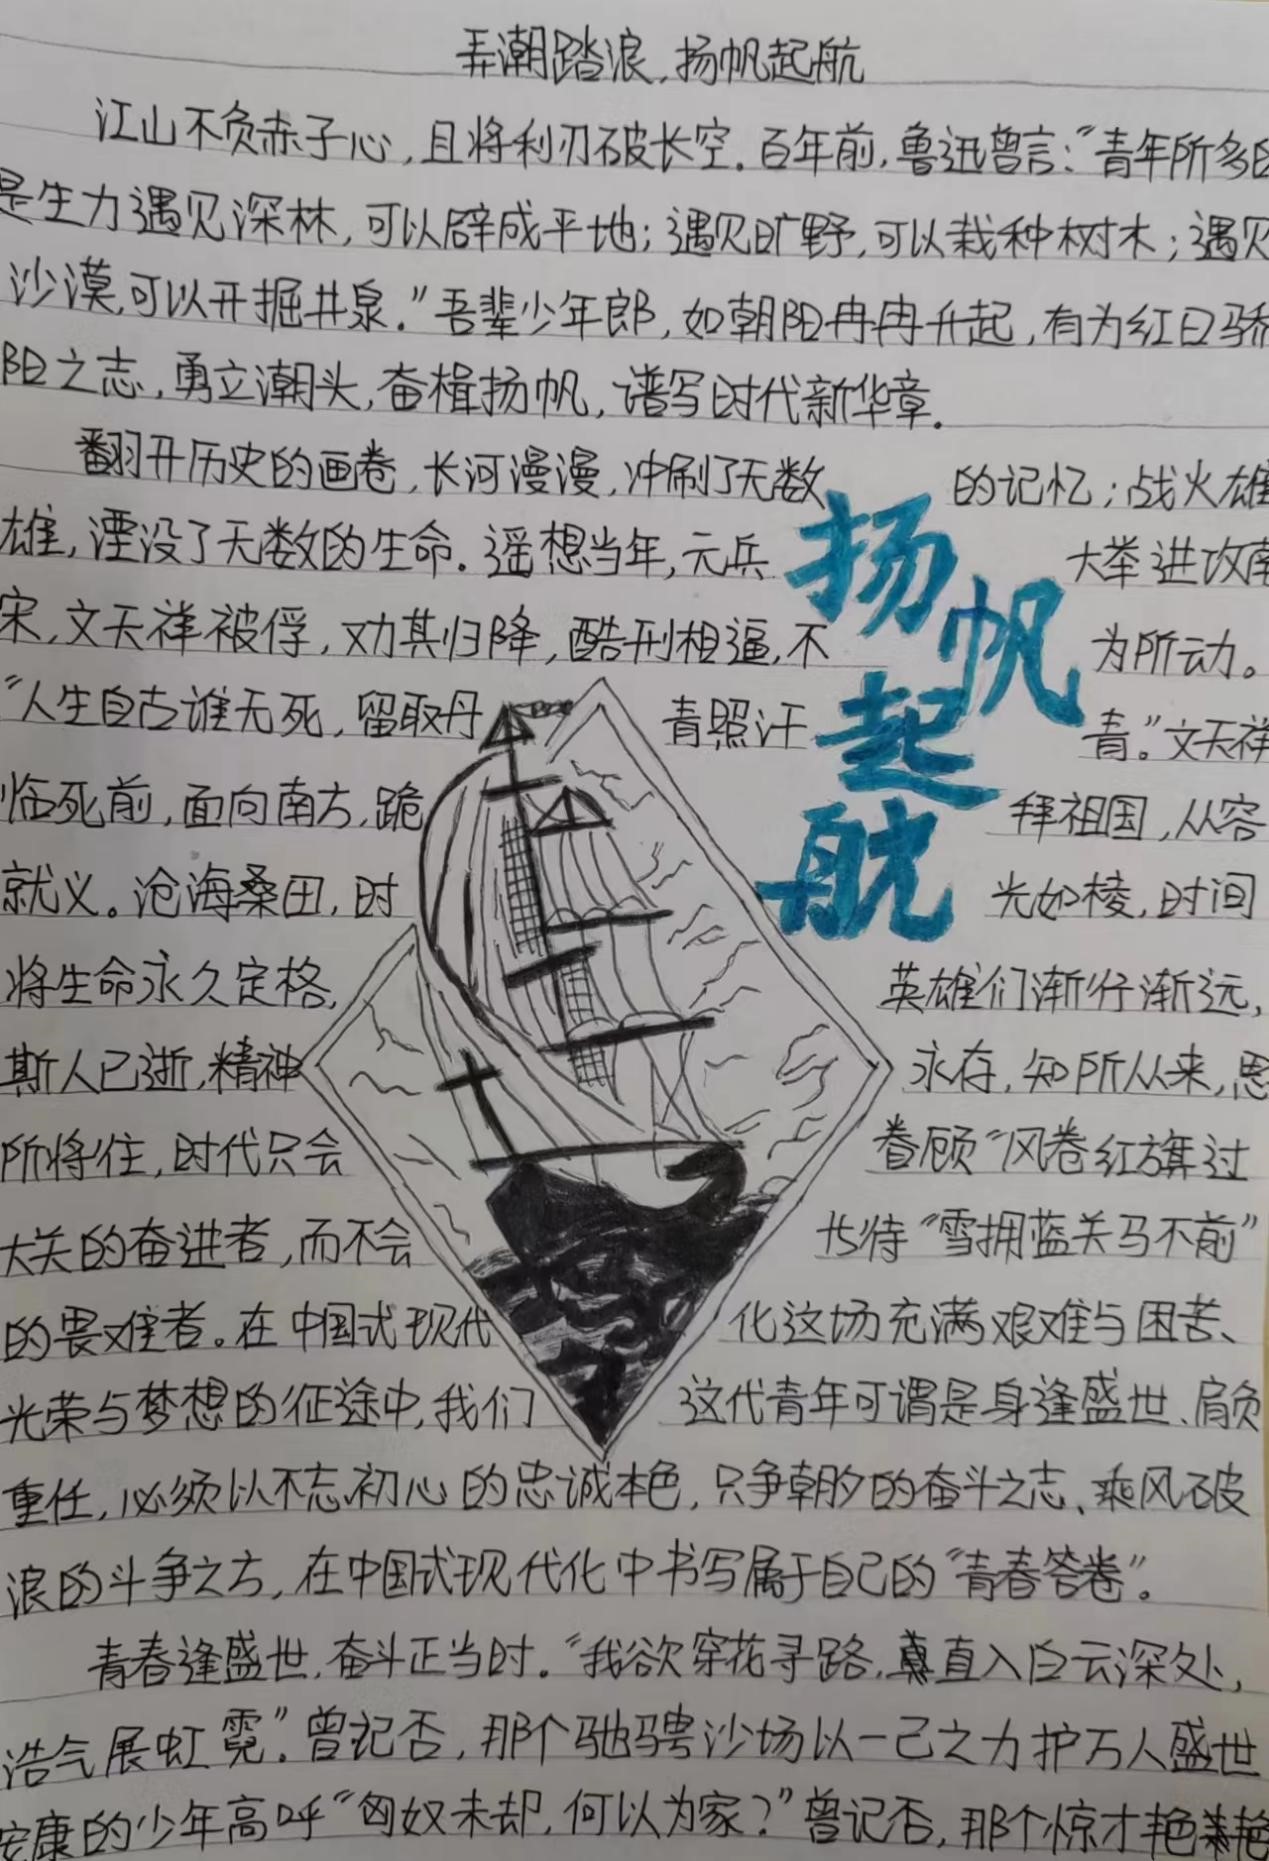 弄潮踏浪,扬帆起航
江山不负赤子心,且将利刃破长空.百年前,鲁迅曾言:"青年所多的
是生力遇见深林,可以辟成平地;遇见旷野,可以栽种树木;遇见
沙漠,可以开掘井泉."吾辈少年郎,如朝阳冉冉升起,有为红日骄
阳之志,勇立潮头,奋楫扬帆,谱写时代新华章.
翻开历史的画卷,长河漫漫,冲刷了无数的记忆;战火雄
雄,湮没了无数的生命。遥想当年,元兵大举进攻南
宋,文天祥被俘,劝其归降,酷刑相逼,不为所动。
"人生自古谁无死,留取丹青照汗青."文天祥
临死前,面向南方,跪拜祖国,从容
就义。沧海桑田,时光如棱,时间
将生命永久定格,英雄们渐行渐远,
斯人已逝,精神永存,知所从来,思
所将往,时代只会眷顾"风卷红旗过
大关的奋进者,而不会优待"雪拥蓝关马不前"
的畏难者。在中国式现代化这场充满艰难与困苦、
光荣与梦想的征途中,我们这代青年可谓是身逢盛世、肩负
重任,必须以不忘初心的忠诚本色,只争朝夕的奋斗之志、乘风破
浪的斗争之方,在中国式现代化中书写属于自己的"青春答卷"。
青春逢盛世,奋斗正当时。"我欲穿花寻路,直入白云深处,
浩气展虹霓".曾记否,那个驰骋沙场以一己之力护万人盛世
安康的少年高呼"匈奴未却,何以为家?"曾记否,那个惊才艳艳
扬帆起航